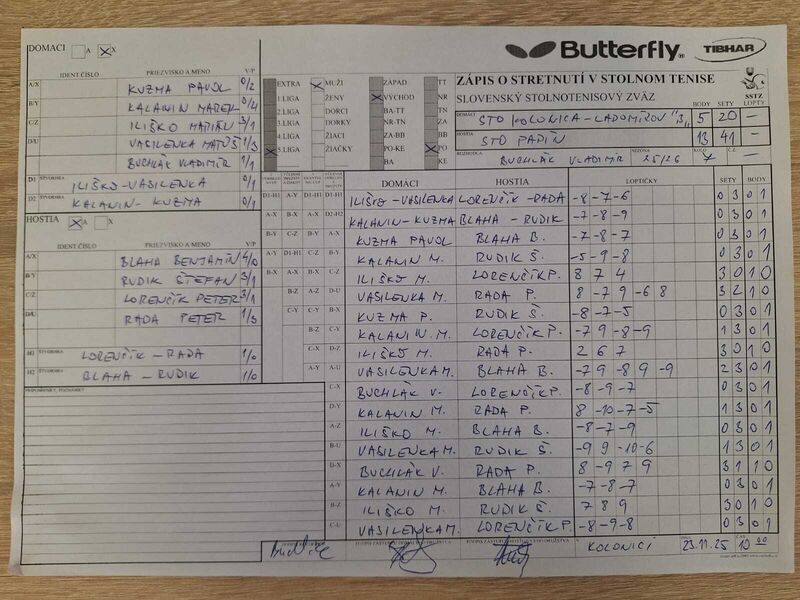 DOMACI A X
Butterfly® TIBHAR
IDENT ČÍSLO PRIEZVISKO A MENO V/P
A/X KUZMA PAVOL 0/2
B/Y KALANIN MAREK 0/4
C/Z ILIŠKO MARIÁN 3/1
D/U VASILENKA MATÚŠ 1/3
BUCHLÁK VLADIMÍR 1/1
D1 ŠTVORHRA ILIŠKO-VASILENKA 0/1
D2 ŠTVORHRA KALANIN-KUZMA 0/1
HOSTIA A X
IDENT ČÍSLO PRIEZVISKO A MENO V/P
A/X BLAHA BENJAMÍN 4/0
B/Y RUDIK ŠTEFAN 3/1
C/Z LORENČÍK PETER 3/1
D/U RADA PETER 1/3
H1 ŠTVORHRA LORENČÍK-RADA 1/0
H2 ŠTVORHRA BLAHA-RUDIK 1/0
PRIPOMIENKY, POZNÁMKY
EXTRA MUŽI ZÁPAD TT
1.LIGA ŽENY VÝCHOD NR
2.LIGA DORCI BA-TT NR
3.LIGA DORKY NR-TN ZA
4.LIGA ŽIACI ZA-BB BB
5.LIGA ŽIAČKY PO-KE PO
BA KE
ZÁPIS O STRETNUTÍ V STOLNOM TENISE
SLOVENSKÝ STOLNOTENISOVÝ ZVÄZ
SSTZ
BODY SETY LOPTY
DOMACI STO KOLONICA-LADOMÍROV "B" 5 20 -
HOSTIA STO PAPÍN 13 41 -
ROZHODCA BUCHLÁK VLADIMÍR SEZÓNA 25/26 KOLO 7 Č.Z. -
DOMACI HOSTIA LOPTIČKY SETY BODY
D1-H1 A-Y D1-H1 D1-H1 ILIŠKO-VASILENKA LORENČÍK-RADA -8 -7 -6 0 3 0 1
A-X B-X A-X D2-H2 KALANIN-KUZMA BLAHA-RUDIK -7 -8 -9 0 3 0 1
B-Y C-Z B-Y A-X KUZMA PAVOL BLAHA B. -7 -8 -7 0 3 0 1
A-Y D1-H1 C-Z B-Y KALANIN M. RUDIK Š. -5 -9 -8 0 3 0 1
B-X A-X B-X C-Z ILIŠKO M. LORENČÍK P. 8 7 4 3 0 1 0
B-Z A-Z D-U VASILENKA M. RADA P. 8 -7 9 -6 8 3 2 1 0
C-Y C-Y B-X KUZMA P. RUDIK Š. -8 -7 -5 0 3 0 1
B-Z C-Y KALANIN M. LORENČÍK P. -7 9 -8 -9 1 3 0 1
C-X D-Z ILIŠKO M. RADA P. 2 6 7 3 0 1 0
A-Y A-U VASILENKA M. BLAHA B. -7 9 8 9 -9 2 3 0 1
C-X BUCHLÁK V. LORENČÍK P. -8 -9 -7 0 3 0 1
D-Y KALANIN M. RADA P. 8 -10 -7 -5 1 3 0 1
A-Z ILIŠKO M. BLAHA B. -8 -7 -9 0 3 0 1
B-U VASILENKA M. RUDIK Š. -9 9 -10 -6 1 3 0 1
D-X BUCHLÁK V. RADA P. 8 -9 7 9 3 1 1 0
A-Y KALANIN M. BLAHA B. -7 -8 -7 0 3 0 1
B-Z ILIŠKO M. RUDIK Š. 7 8 9 3 0 1 0
C-U VASILENKA M. LORENČÍK P. -8 -9 -8 0 3 0 1
V KOLONICI 23.11.25 ČAS 10 00